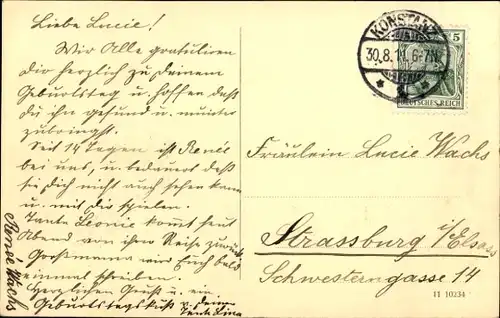 Liebe Lucie!
Wir Alle gratuliren
Dir herzlich zu Deinem
Geburtstag u. hoffen daß
du ihn gesund u. munter
zubringst.
Seit 14 Tagen ist Renée
bei uns, u. bedauert daß
sie Dich nicht auch sehen kann
u. mit dir spielen.
Tante Leonie kommt heut
Abend von ihrer Reise zurück
Großmama wird Euch bald
einmal schreiben.
Herzlichen Gruß u. ein
Geburtstagskuß v. Deiner
Tante Lina
Renée Wachs
KONSTANZ
30.8.11. 6-7N.
5
DEUTSCHES REICH
Fräulein Lucie Wachs
Strassburg i/Elsass
Schwesterngasse 14
11 10234